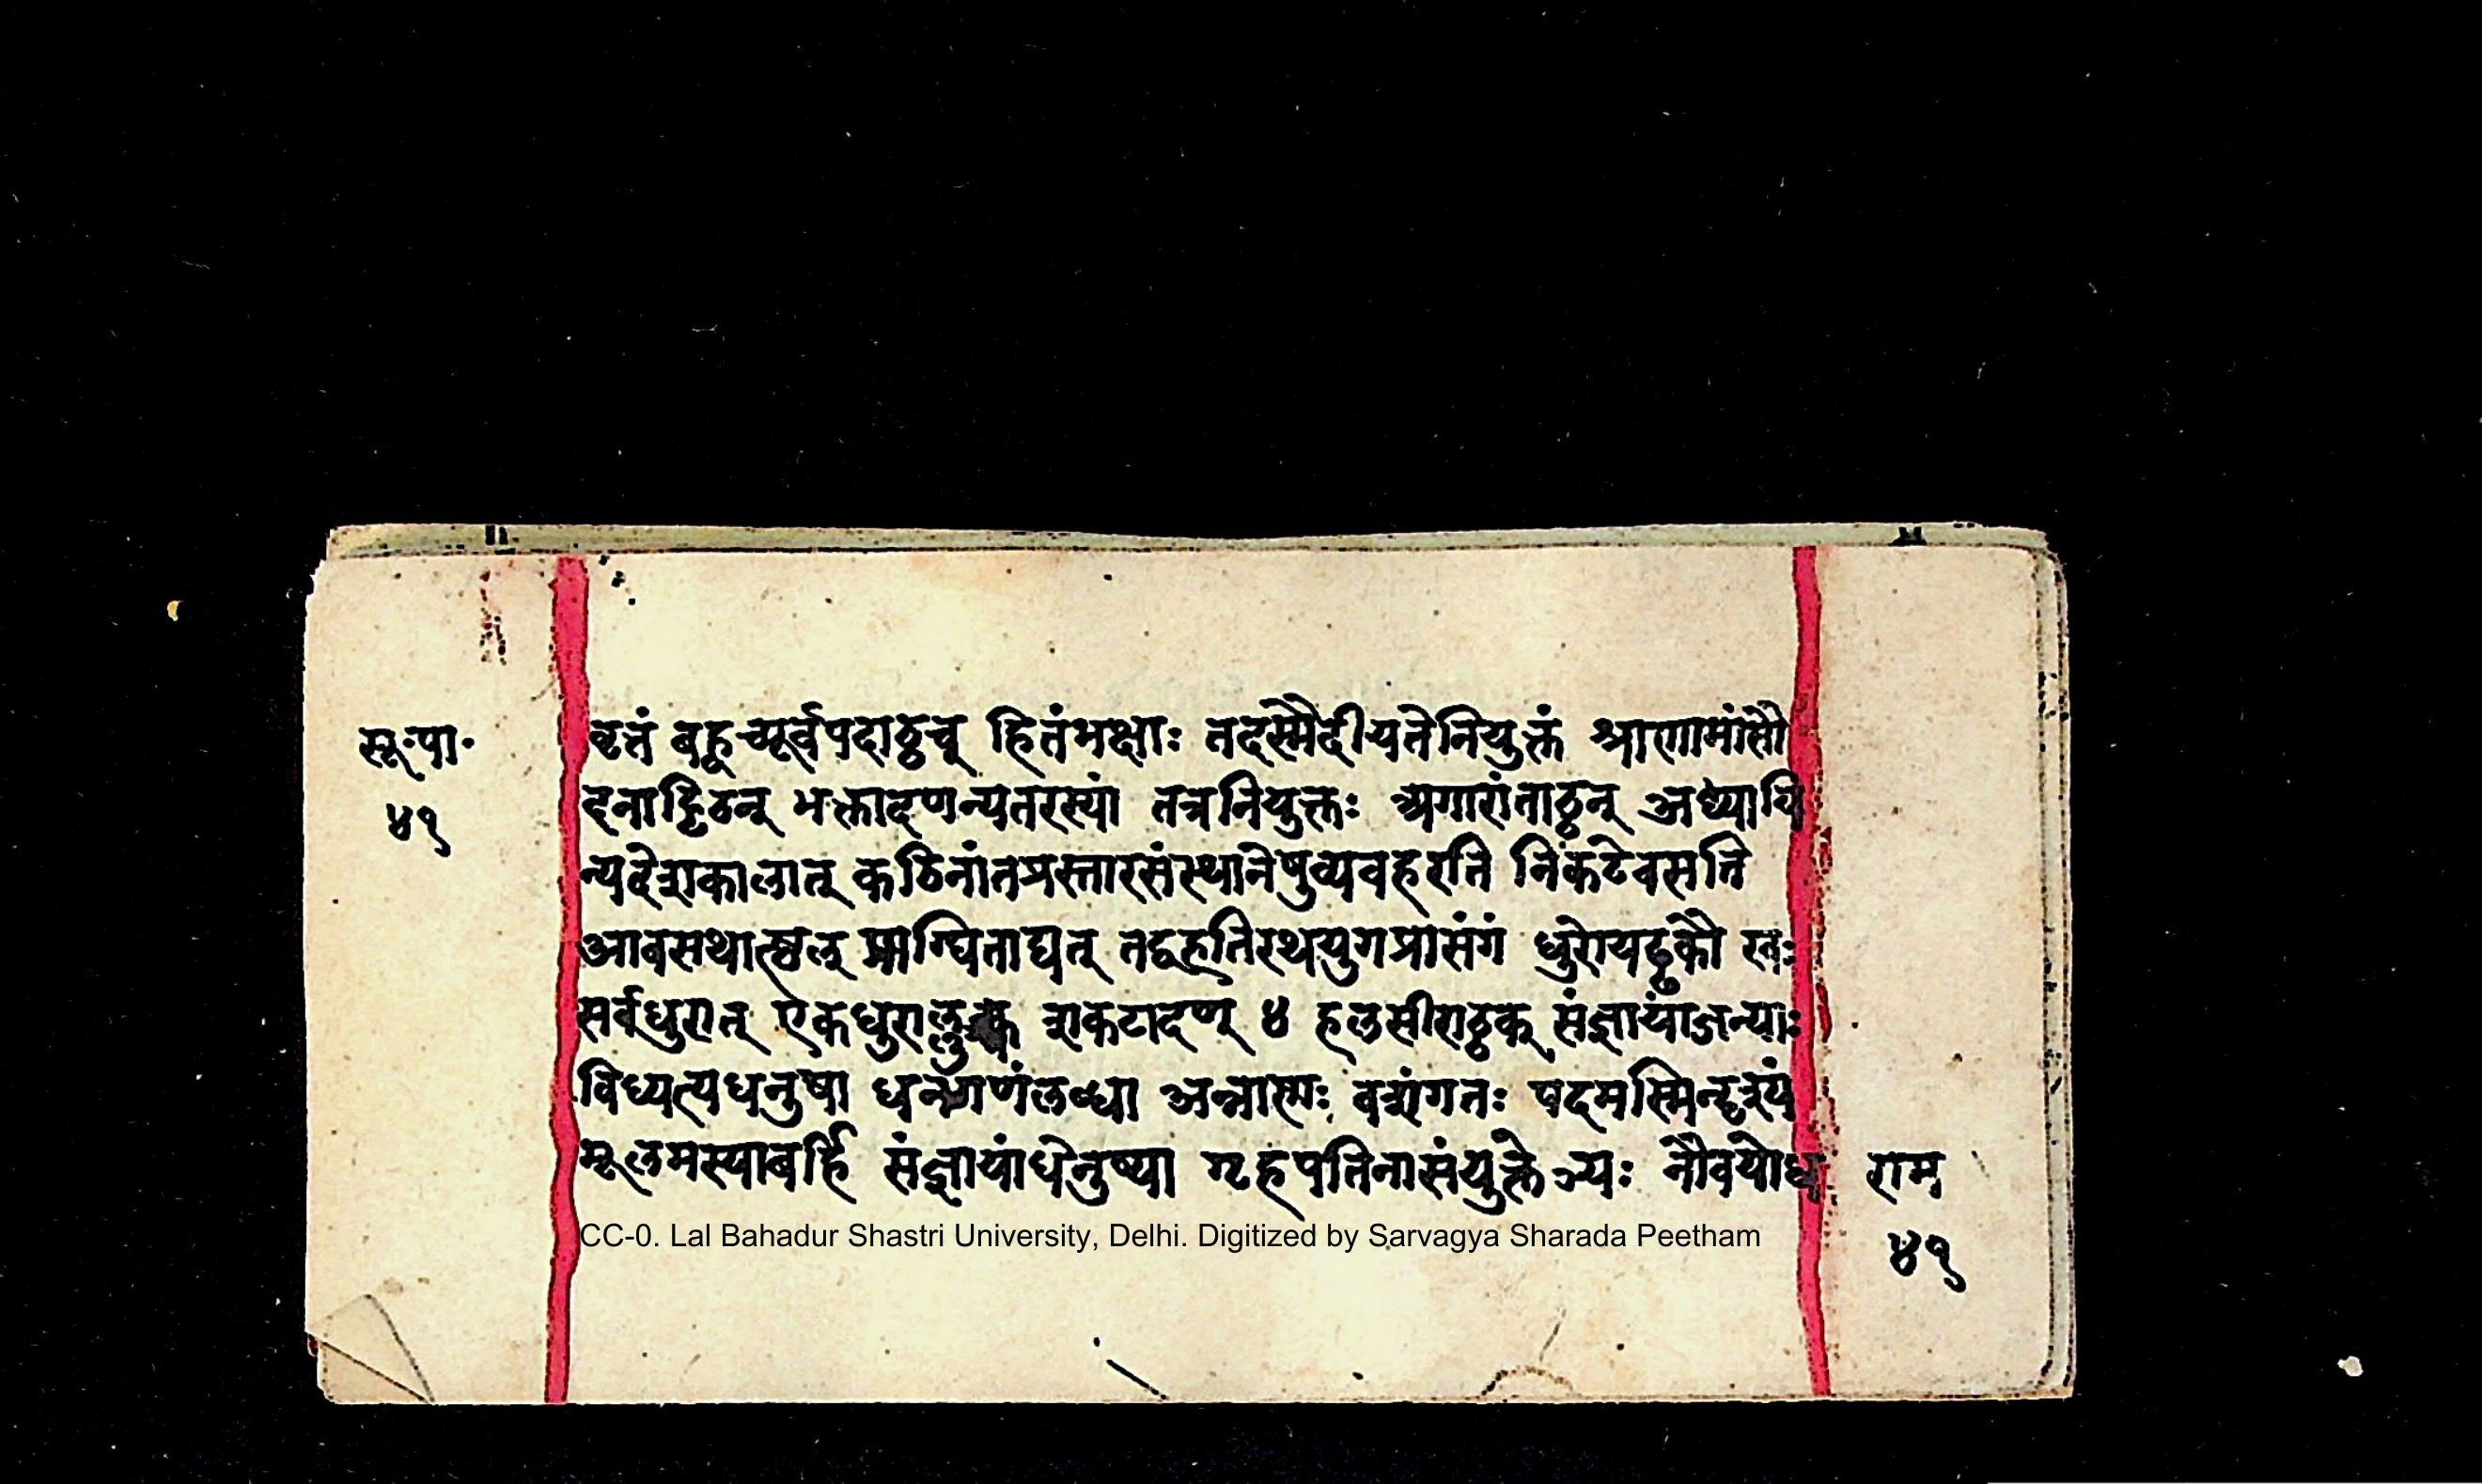 सू॰पा॰
४१
वृत्तं बह्वच्पूर्वपदाठ्ठच् हितंभक्षाः तदस्मैदीयतेनियुक्तं श्राणामांसौ
दनाट्टिठन् भक्तादणन्यतरस्यां तत्रनियुक्तः अगारांताठ्ठन् अध्यायि
न्यदेशकालात् कठिनांतप्रस्तारसंस्थानेषुव्यवहरति निकटेवसति
आवसथात्ष्ठल् प्राग्घिताद्यत् तद्वहतिरथयुगप्रासंगं धुरोयड्ढकौ खः
सर्वधुरात् एकधुराल्लुक्च शकटादण् ४ हलसीराठ्ठक् संज्ञायांजन्याः
विध्यत्यधनुषा धनगणंलब्धा अन्नाण्णः वशंगतः पदमस्मिन्दृश्यं
मूलमस्याबर्हि संज्ञायांधेनुष्या गृहपतिनासंयुक्तेञ्यः नौवयोध
राम
४१
CC-0. Lal Bahadur Shastri University, Delhi. Digitized by Sarvagya Sharada Peetham